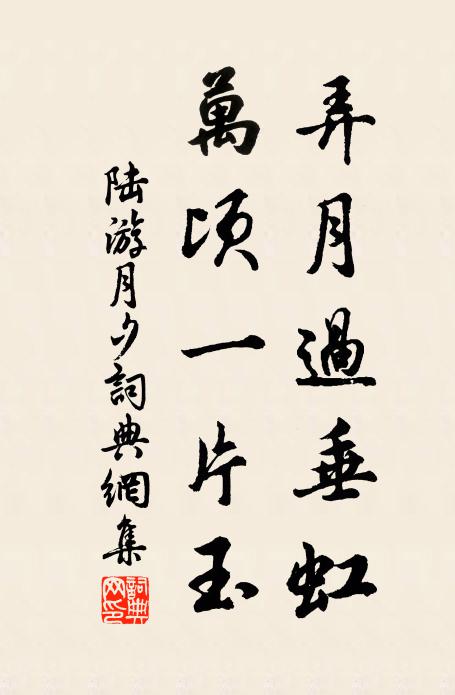 弄月過垂虹
萬頃一片玉
陆游月夕詞典網集
詞典网印